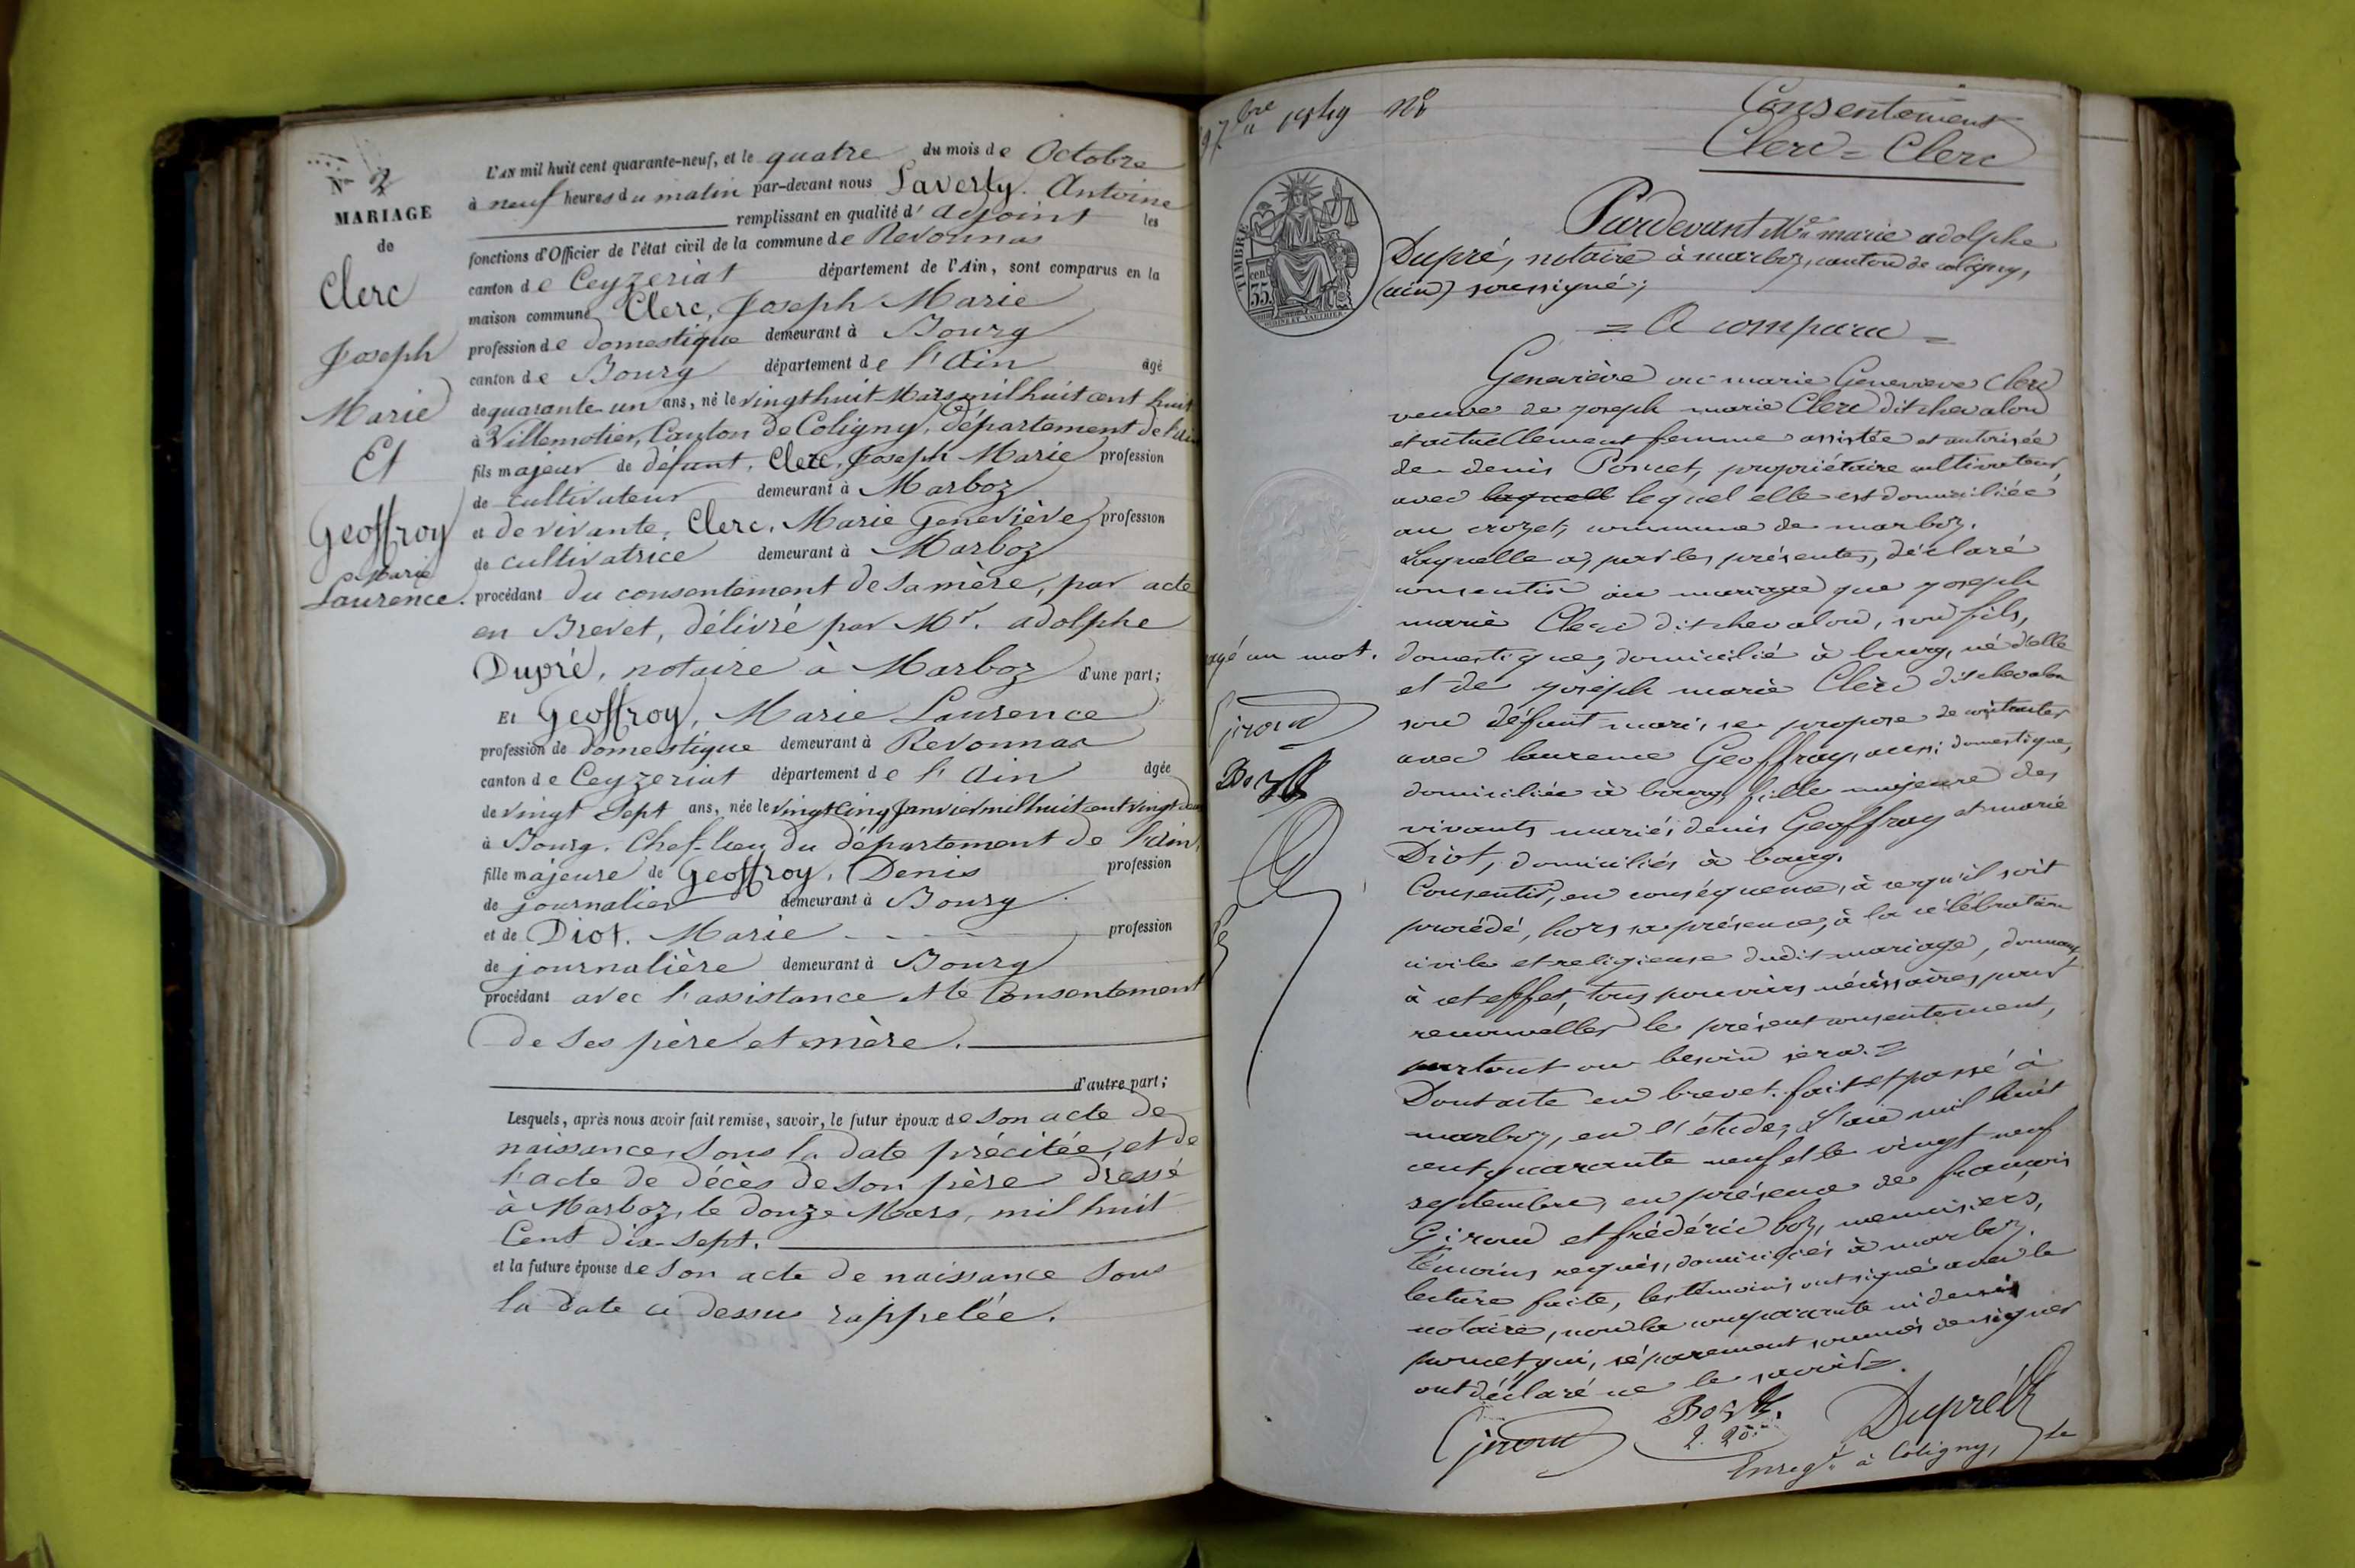 N° 2
MARIAGE
de
Clerc
Joseph
Marie
Et
Geoffroy
Marie
Laurence.
L'AN mil huit cent quarante-neuf, et le quatre du mois de Octobre
à neuf heures du matin par-devant nous Laverly. Antoine
remplissant en qualité d'adjoint les
fonctions d'Officier de l'état civil de la commune de Revonnas
canton de Ceyzeriat département de l'Ain, sont comparus en la
maison commune Clerc, Joseph Marie
profession de domestique demeurant à Bourg
canton de Bourg département de l'Ain âgé
de quarante-un ans, né le vingt huit Mars mil huit cent huit
à Villemotier, Canton de Coligny, département de l'Ain
fils majeur de défunt, Clerc, Joseph Marie profession
de cultivateur demeurant à Marboz
et de vivante, Clerc, Marie Geneviève profession
de cultivatrice demeurant à Marboz
procédant du consentement de sa mère, par acte
en Brevet, délivré par Mr. adolphe
Dupré, notaire à Marboz d'une part;
Et Geoffroy, Marie Laurence
profession de domestique demeurant à Revonnas
canton de Ceyzeriat département de l'Ain âgée
de vingt sept ans, née le vingt cinq Janvier mil huit cent vingt deux
à Bourg. Chef-lieu du département de l'ain,
fille majeure de Geoffroy, Denis profession
de journalier demeurant à Bourg.
et de Diot. Marie profession
de journalière demeurant à Bourg
procédant avec l'assistance et le Consentement
de ses père et mère.
d'autre part;
Lesquels, après nous avoir fait remise, savoir, le futur époux de son acte de
naissance, sous la date précitée, et de
l'acte de décès de son père dressé
à Marboz, le douze Mars, mil huit
Cent dix-sept.
et la future épouse de son acte de naissance sous
la date ci dessus rappelée.
Consentement
Clerc = Clerc
TIMBRE
cen
35
Pardevant Me marie adolphe
Dupré, notaire à marboz, canton de coligny,
(ain) soussigné;
= A comparu =
Geneviève ou marie Genevieve Clerc
veuve de joseph marie Clerc dit chevalon
et actuellement femme assistée et autorisée
de denis Poncet, propriétaire cultivateur,
avec laquell lequel elle est domiciliée
au crozet, commune de marboz.
Laquelle a, par les présentes, déclaré
consentir au mariage que joseph
marie Clerc dit chevalon, son fils,
domestique, domicilié à bourg, né d'elle
et de joseph marie Clerc dit chevalon
son défunt mari, se propose de contracter
avec laurence Geoffray, aussi domestique,
domiciliée à bourg, fille majeure des
vivants mariés denis Geoffray et marie
Diot, domiciliés à bourg.
Consentir, en conséquence, à ce qu'il soit
procédé, hors sa présence, à la célébration
civile et religieuse dudit mariage, donnant,
à cet effet, tous pouvoirs nécessaires pour
renouveller le présent consentement,
partout ou besoin sera. =
Dont acte en brevet. fait et passé à
marboz, en l'étude, L'an mil huit
cent quarante neuf et le vingt neuf
septembre, en présence de françois
Giroud et frédéric boz, menuisiers,
témoins requis, domiciliés à marboz.
lecture faite, les témoins ont signé avec le
notaire, non la comparante ni denis
poncet qui, séparement sommés de signer
ont déclaré ne le savoir =.
agé un mot.
Giroud
Boz
Giroud
Boz
2. 20.
Dupré
Enregé à Coligny, le